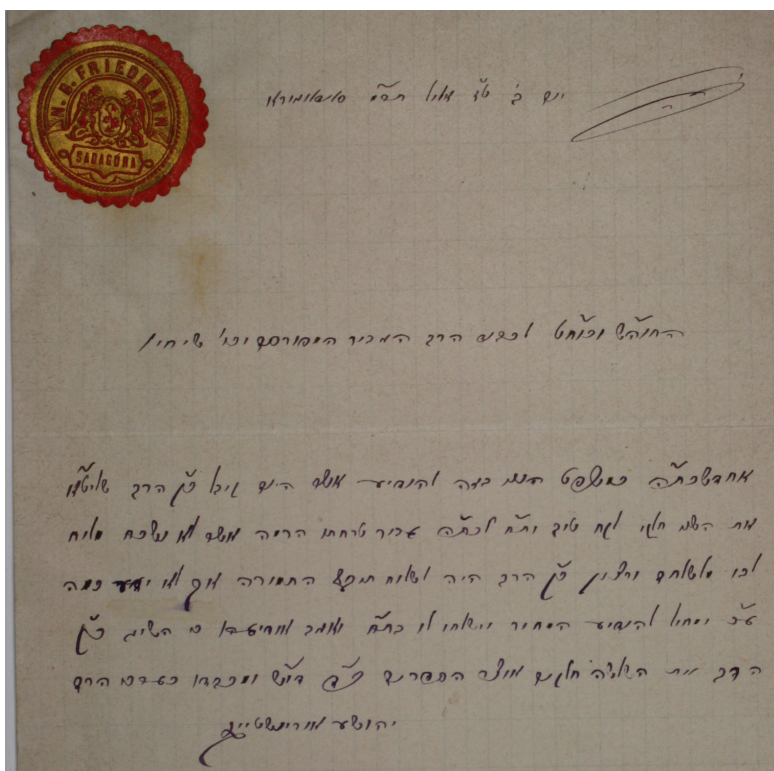 FRIEDMANN
SADAGÓRA
יום ב' ט"ו אלול סאדאגורא
החוה"ש וכוח"ט לכבוד הרב המכיר המפורסם וכו' שיחי'
אחדשכת"ה כמשפט הנני בזה להודיע אשר היום קיבל כ"ק הרב שליט"א
את השני חלקי לקח טוב ות"ח לכת"ה עבור טרחתו הרבה אשר לא נשכח מלוח
לבו מלשלחם ורצון כ"ק הרב היה לשלוח תיכף התמורה אך לא ידע כמה
ע"כ ימחול להודיע המחיר וישלחו לו בת"ח ואגב אודיעהו כי השיג כ"ק
הרב את השלשה חלקים אוצר הספרים דו"ש ומכבדו כערכו הרם
יהושע